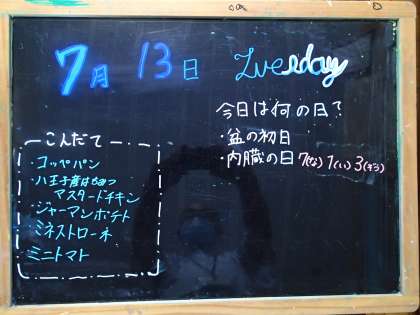 7月 13日 Tuesday
今日は何の日?
・盆の初日
・内臓の日 7(ない) 1(い) 3(ぞう)
こんだて
・コッペパン
・八王子産はちみつ
マスタードチキン
・ジャーマンポテト
・ミネストローネ
・ミニトマト